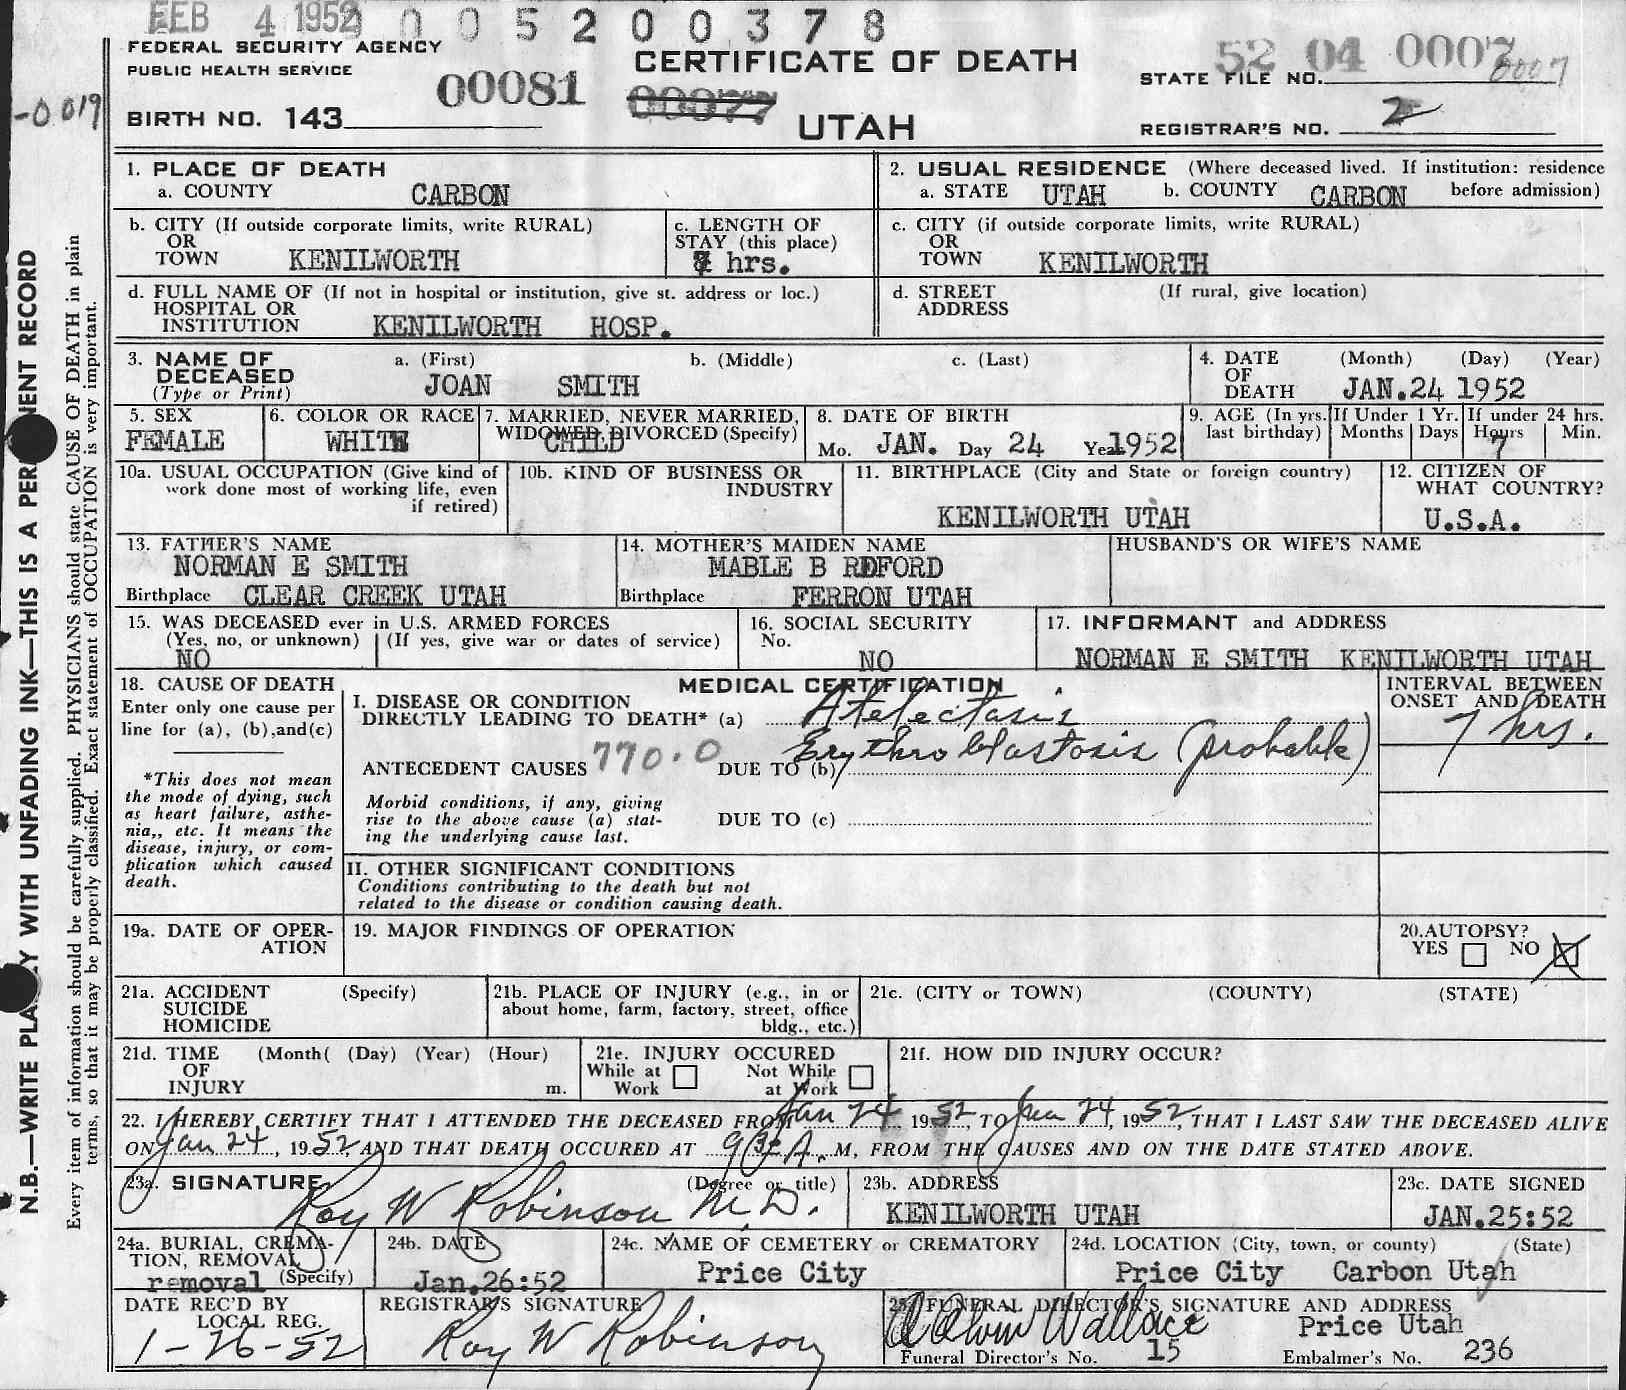 FEB 4 1952 0 0 5 2 0 0 3 7 8
FEDERAL SECURITY AGENCY
PUBLIC HEALTH SERVICE
00081
CERTIFICATE OF DEATH
00077
UTAH
52 04 0007
0007
STATE FILE NO.
-0 019
BIRTH NO. 143
REGISTRAR'S NO. 2
N.B.—WRITE PLAINLY WITH UNFADING INK—THIS IS A PERMANENT RECORD
Every item of information should be carefully supplied. PHYSICIANS should state CAUSE OF DEATH in plain
terms, so that it may be properly classified. Exact statement of OCCUPATION is very important.
1. PLACE OF DEATH
a. COUNTY CARBON
2. USUAL RESIDENCE (Where deceased lived. If institution: residence
a. STATE UTAH b. COUNTY CARBON before admission)
b. CITY (If outside corporate limits, write RURAL)
OR
TOWN KENILWORTH
c. LENGTH OF
STAY (this place)
7 hrs.
c. CITY (if outside corporate limits, write RURAL)
OR
TOWN KENILWORTH
d. FULL NAME OF (If not in hospital or institution, give st. address or loc.)
HOSPITAL OR
INSTITUTION KENILWORTH HOSP.
d. STREET (If rural, give location)
ADDRESS
3. NAME OF
DECEASED
(Type or Print)
a. (First) b. (Middle) c. (Last)
JOAN SMITH
4. DATE (Month) (Day) (Year)
OF
DEATH JAN.24 1952
5. SEX
FEMALE
6. COLOR OR RACE
WHITE
7. MARRIED, NEVER MARRIED,
WIDOWED, DIVORCED (Specify)
CHILD
8. DATE OF BIRTH
Mo. JAN. Day 24 Year 1952
9. AGE (In yrs.
last birthday)
If Under 1 Yr.
Months Days
If under 24 hrs.
Hours Min.
7
10a. USUAL OCCUPATION (Give kind of
work done most of working life, even
if retired)
10b. KIND OF BUSINESS OR
INDUSTRY
11. BIRTHPLACE (City and State or foreign country)
KENILWORTH UTAH
12. CITIZEN OF
WHAT COUNTRY?
U.S.A.
13. FATHER'S NAME
NORMAN E SMITH
Birthplace CLEAR CREEK UTAH
14. MOTHER'S MAIDEN NAME
MABLE B REDFORD
Birthplace FERRON UTAH
HUSBAND'S OR WIFE'S NAME
15. WAS DECEASED ever in U.S. ARMED FORCES
(Yes, no, or unknown) (If yes, give war or dates of service)
NO
16. SOCIAL SECURITY
No.
NO
17. INFORMANT and ADDRESS
NORMAN E SMITH KENILWORTH UTAH
18. CAUSE OF DEATH
Enter only one cause per
line for (a), (b), and (c)
*This does not mean
the mode of dying, such
as heart failure, asthe-
nia,, etc. It means the
disease, injury, or com-
plication which caused
death.
MEDICAL CERTIFICATION
I. DISEASE OR CONDITION
DIRECTLY LEADING TO DEATH* (a) Atelectasis
770.0 Erythroblastosis (probable)
ANTECEDENT CAUSES DUE TO (b)
Morbid conditions, if any, giving
rise to the above cause (a) stat-
ing the underlying cause last.
DUE TO (c)
INTERVAL BETWEEN
ONSET AND DEATH
7 hrs.
II. OTHER SIGNIFICANT CONDITIONS
Conditions contributing to the death but not
related to the disease or condition causing death.
19a. DATE OF OPER-
ATION
19. MAJOR FINDINGS OF OPERATION
20. AUTOPSY?
YES NO X
21a. ACCIDENT (Specify)
SUICIDE
HOMICIDE
21b. PLACE OF INJURY (e.g., in or
about home, farm, factory, street, office
bldg., etc.)
21c. (CITY or TOWN) (COUNTY) (STATE)
21d. TIME (Month( (Day) (Year) (Hour)
OF
INJURY m.
21e. INJURY OCCURED
While at Not While
Work at Work
21f. HOW DID INJURY OCCUR?
22. I HEREBY CERTIFY THAT I ATTENDED THE DECEASED FROM Jan 24 1952, TO Jan 24, 1952, THAT I LAST SAW THE DECEASED ALIVE
ON Jan 24, 1952 AND THAT DEATH OCCURED AT 9:30 A. M, FROM THE CAUSES AND ON THE DATE STATED ABOVE.
23a. SIGNATURE (Degree or title)
Roy W Robinson M.D.
23b. ADDRESS
KENILWORTH UTAH
23c. DATE SIGNED
JAN.25:52
24a. BURIAL, CREMA-
TION, REMOVAL
removal (Specify)
24b. DATE
Jan.26:52
24c. NAME OF CEMETERY or CREMATORY
Price City
24d. LOCATION (City, town, or county) (State)
Price City Carbon Utah
DATE REC'D BY
LOCAL REG.
1-26-52
REGISTRAR'S SIGNATURE
Roy W Robinson
25. FUNERAL DIRECTOR'S SIGNATURE AND ADDRESS
Wallace Price Utah
Funeral Director's No. 15 Embalmer's No. 236